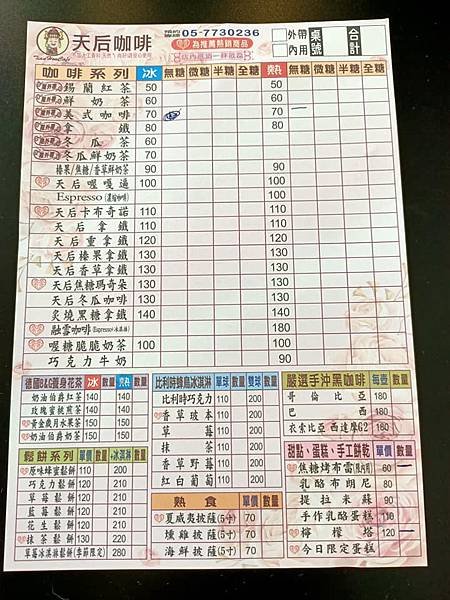 天后咖啡
預約專線 05-7730236
為推薦熱銷商品
外帶 內用 桌號 合計
咖啡系列 冰 無糖 微糖 半糖 全糖 熱 無糖 微糖 半糖 全糖
錫蘭紅茶 50 50
鮮奶茶 60 60
美式咖啡 70 70
拿鐵 80 80
冬瓜茶 60
冬瓜鮮奶茶 70
榛果/焦糖/香草鮮奶茶 90
天后喔嘎逼 100 100
Espresso(濃縮咖啡)
天后卡布奇諾 110
天后拿鐵 110
天后重拿鐵 120
天后榛果拿鐵 130
天后香草拿鐵 130
天后焦糖瑪奇朵 130
天后冬瓜咖啡 130
炙燒黑糖拿鐵 140
融雲咖啡(Espresso+冰淇淋)
喔糖脆脆奶茶 100
巧克力牛奶
德國B&G養身花茶 冰 數量 熱 數量
奶油伯爵紅茶 140 140
玫瑰蜜桃煎茶 140 140
黃金歲月水果茶 150 150
奶油伯爵奶茶 150 150
鬆餅系列 單價 數量 +冰淇淋 數量
原味蜂蜜鬆餅 110 200
巧克力鬆餅 110 200
草莓鬆餅 110 200
藍莓鬆餅 110 200
花生鬆餅 110 200
抹茶鬆餅 130 200
草莓冰淇淋鬆餅(季節限定) 280
比利時蜂鳥冰淇淋 單球 數量 雙球 數量
比利時巧克力 110 200
香草玻本 110 200
草莓 110 200
抹茶 110 200
香草野莓 110 200
紅白葡萄 110 200
熱食 單價 數量
夏威夷披薩(5寸) 70
燻雞披薩(5寸) 70
海鮮披薩(5寸) 70
嚴選手沖黑咖啡 每壺 數量
哥倫比亞 180
巴西 160
衣索比亞西達摩G2 160
甜點、蛋糕、手工餅乾 單價 數量
焦糖烤布蕾(限內用) 60
乳酪布朗尼 80
提拉米蘇 90
手作乳酪蛋糕 110
檸檬塔 120
今日限定蛋糕